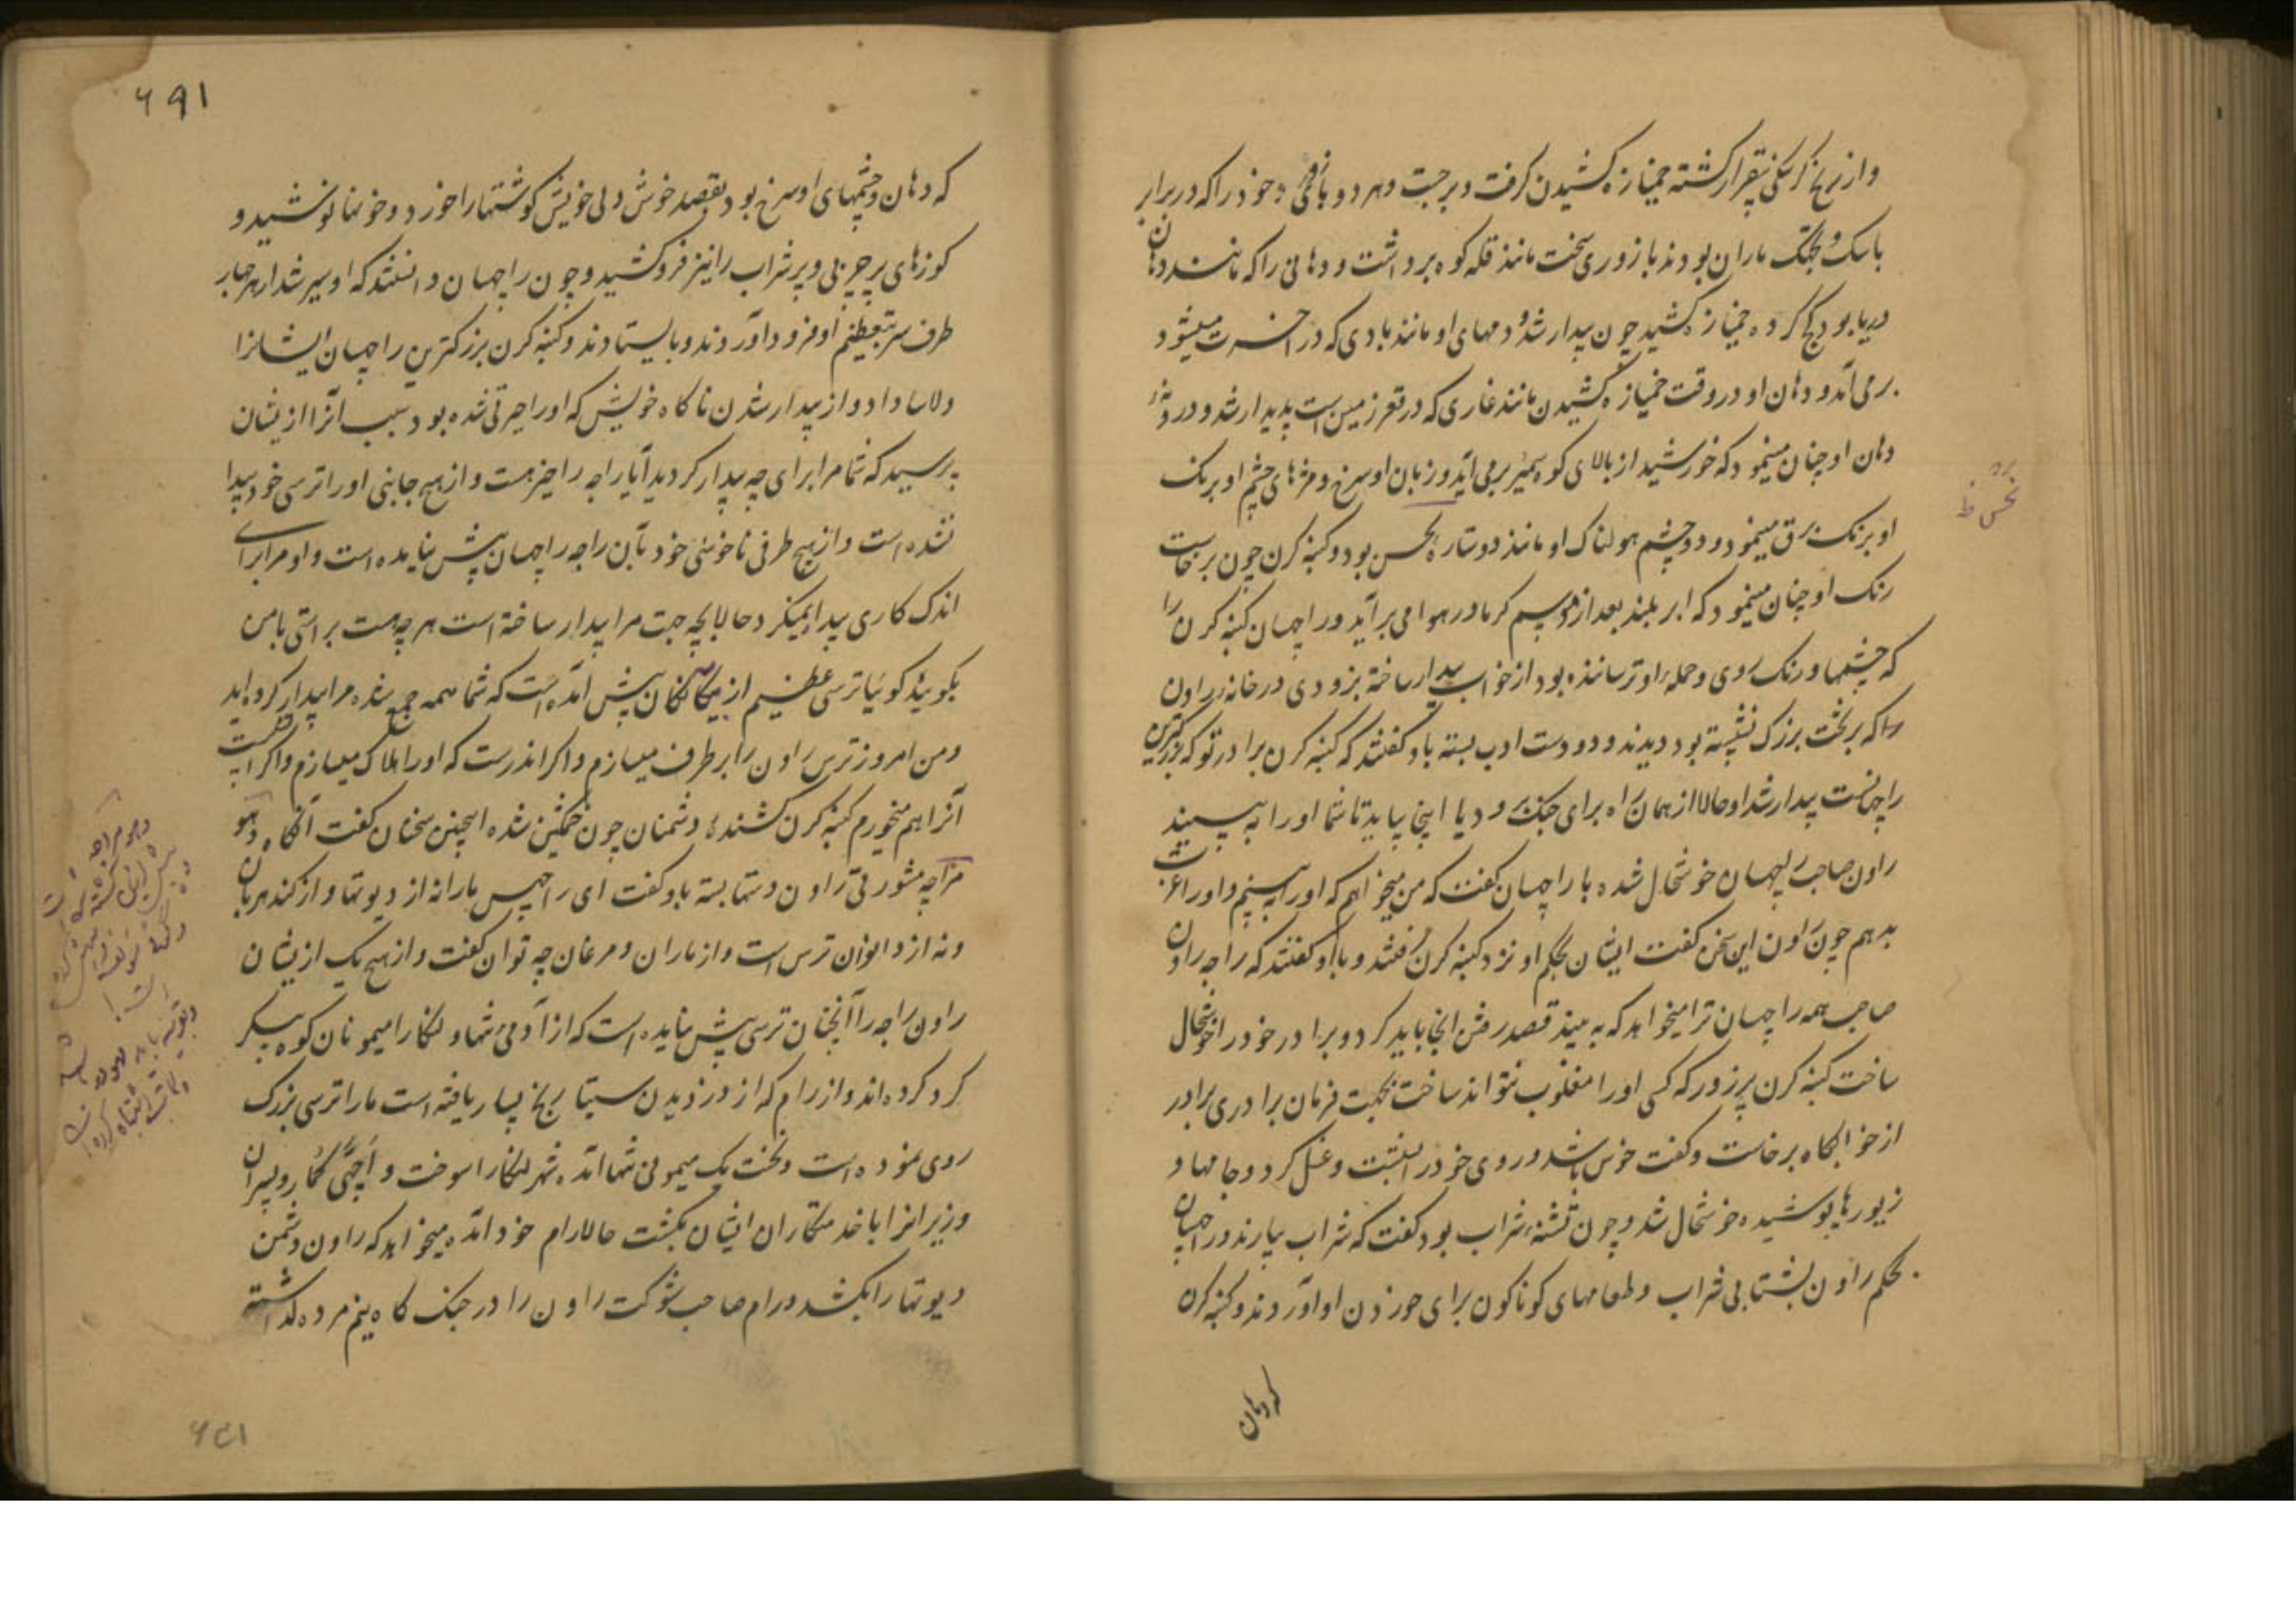 و از رنج گرسنگی بیقرار گشته خمیازه کشیدن گرفت و برجست و هر دو بازوی خود را که در برابر
باسک و تچک ماران بودند با زوری سخت مانند قله کوه برداشت و دهانی را که مانند دهان
دریا بود کج کرده خمیازه کشید چون بیدار شد دمهای او مانند بادی که در آخر میشود
برمی آمد و دهان او در وقت خمیازه کشیدن مانند غاری که در قعر زمین است پدیدار شد و در
دهان او چنان مینمود که خورشید از بالای کوه سمیر برمی آید و زبان او سرخ و مژهای چشم او برنگ
او برنگ برق مینمود و دو چشم هولناک او مانند دو ستاره نحس بود و کنبه کرن چون برخاست
رنگ او چنان مینمود که ابر بلند بعد از موسم گرما در هوا می برآید و راچهسان کنبه کرن را
که چشمها و رنگ روی و حمله او ترساننده بود از خواب بیدار ساخته بزودی در خانه راون
را که بر تخت بزرگ نشسته بود دیدند و دو دست ادب بسته باو گفتند که کنبه کرن برادر تو که بزرگترین
راچهسانست بیدار شد او حالا از همان راه برای جنگ رود یا اینجا بیاید تا شما او را به بینید
راون صاحب راچهسان خوشحال شده با راچهسان گفت که من میخواهم که او را به بینم و او را
بدهم چون راون این سخن گفت ایشان بحکم او نزد کنبه کرن رفتند و باو گفتند که راجه راون
صاحب همه راچهسان ترا میخواهد که به بیند قصد رفتن آنجا باید کرد و برادر خود را خوشحال
ساخت کنبه کرن پرزور که کسی او را مغلوب نتواند ساخت بجهت فرمان برادری برادر
از خوابگاه برخاست و گفت خوش باشد و روی خود را شست و غسل کرد و جامها و
زیورها پوشیده خوشحال شد و چون تشنه شراب بود گفت که شراب بیارند و راچهسان
بحکم راون بشتابی شراب و طعامهای گوناگون برای خوردن او آوردند و کنبه کرن
که دهان
نحس ظ
۶۹۱
که دهان و چشمهای او سرخ بود بقصد خوش دلی خویش گوشتها را خورد و خونها نوشید و
کوزهای پر چربی و پر شراب را نیز فروکشید و چون راچهسان دانستند که او سیر شد از هر چهار
طرف سر بتعظیم او فرود آوردند و بایستادند و کنبه کرن بزرگترین راچهسان ایشانرا
دلاسا داد و از بیدار شدن ناگاه خویش که او را حیرتی شده بود سبب آنرا از ایشان
پرسید که شما مرا برای چه بیدار کردید آیا راجه را خیر هست و از هیچ جانبی او را ترسی خود پیدا
نشده است و از هیچ طرفی ناخوشی خود بآن راجه راچهسان پیش نیامده است و او مرا برای
اندک کاری بیدار نمیکرد حالا بچه جهت مرا بیدار ساخته است هر چه هست براستی با من
بگویید گوییا ترسی عظیم از بیگانگان پیش آمده است که شما همه جمع شده مرا بیدار کرده اید
و من امروز ترس راون را برطرف میسازم و اگر اندرست که او را هلاک میسازم و اگر آتش است
آنرا هم میخورم کنبه کرن کشنده دشمنان چون خشمگین شده اینچنین سخنان گفت آنگاه دهو
مراچه مشورتی راون دستها بسته باو گفت ای راچهس ما را نه از دیوتها و از گندهربان
و نه از دانوان ترس است و از ماران و مرغان چه توان گفت و از هیچ یک از ایشان
راون راجه را آنچنان ترسی پیش نیامده است که از آدمی تنها و لنکا را میمونان کوه پیکر
گرد کرده اند و از رام که از دزدیدن سیتا رنج بسیار یافته است ما را ترسی بزرگ
روی نموده است و نخست یک میمونی تنها آمده شهر لنکا را سوخت و اچهی کمار و پسران
وزیرانرا با خدمتکاران ایشان بکشت حالا رام خود آمده میخواهد که راون دشمن
دیوتها را بکشد و رام صاحب شوکت راون را در جنگ گاه نیم مرده گذاشته
۶۵۱